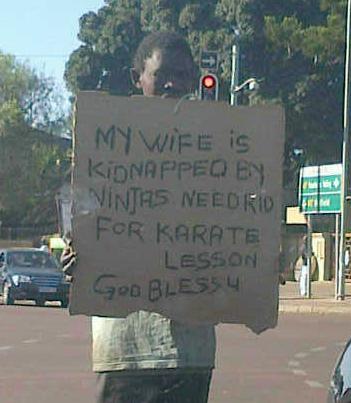 MY WIFE IS
KIDNAPPED BY
NINJAS NEED R10
FOR KARATE
LESSON
GOD BLESS 4